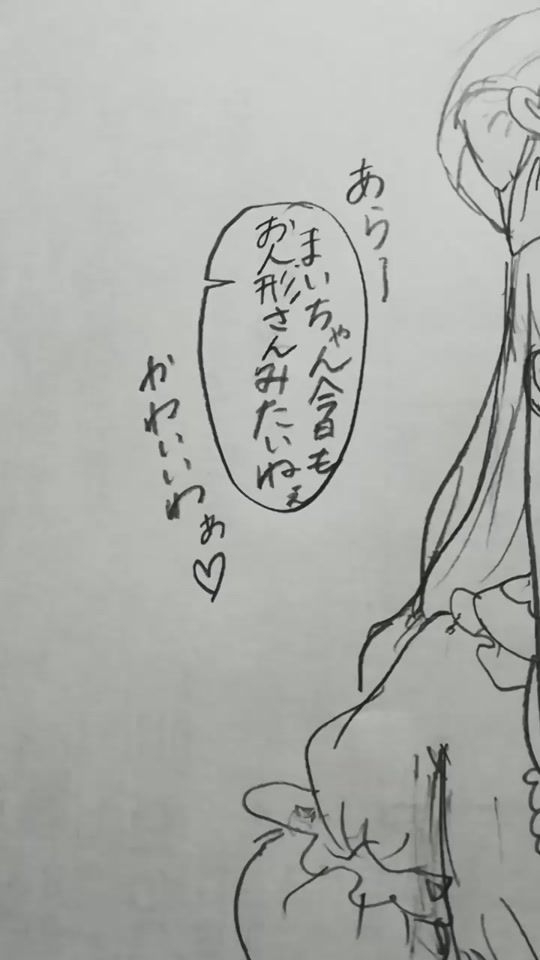 あらー
まいちゃん今日も
お人形さんみたいねぇ
かわいいわぁ♡